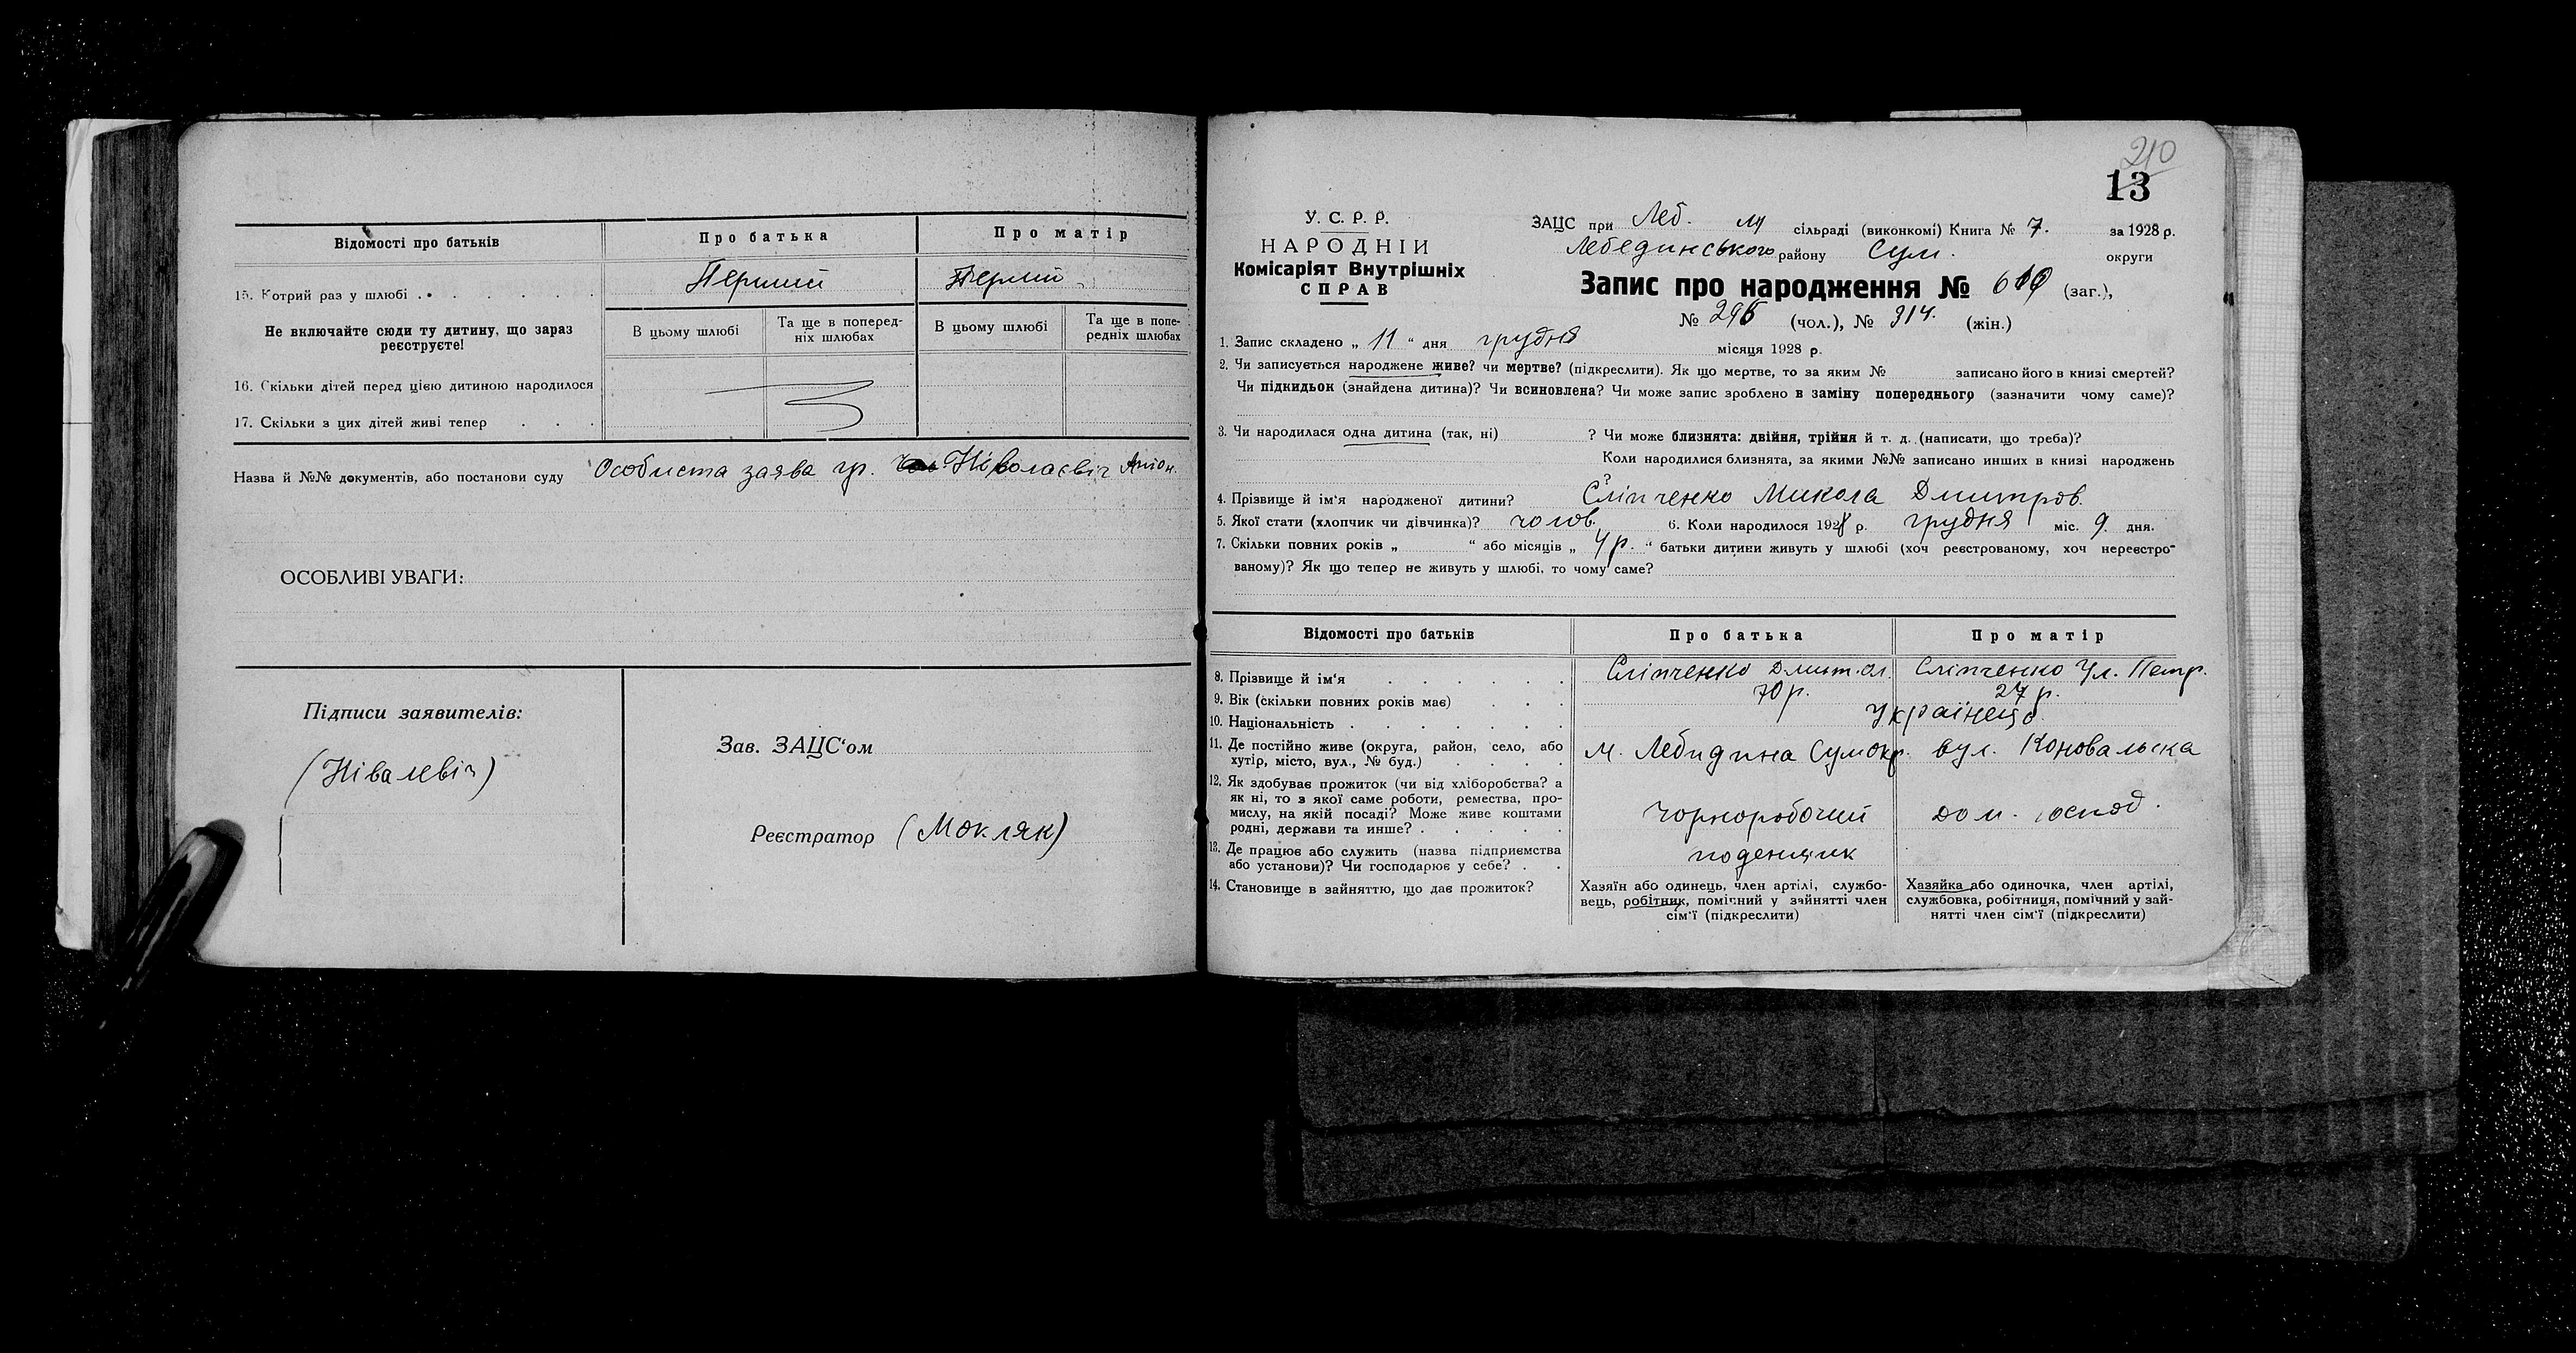 Відомості про батьків
Про батька
Про матір
15. Котрий раз у шлюбі
Перший
Перший
Не включайте сюди ту дитину, що зараз реєструєте!
В цьому шлюбі
Та ще в поперед-
ніх шлюбах
В цьому шлюбі
Та ще в попе-
редніх шлюбах
16. Скільки дітей перед цією дитиною народилося
17. Скільки з цих дітей живі тепер
Назва й №№ документів, або постанови суду Особиста заява гр.
ОСОБЛИВІ УВАГИ:
Підписи заявителів:
(Нівалевіч)
Зав. ЗАЦС'ом
Реєстратор (Мокляк)
210
13
У. С. Р. Р.
НАРОДНІЙ
Комісаріят Внутрішніх
СПРАВ
ЗАЦС при Леб. сільраді (виконкомі) Книга № 7. за 1928 р.
Лебединського району Сум. округи
Запис про народження № (заг.),
№ (чол.), № 314. (жін.)
1. Запис складено „ 11 “ дня грудня місяця 1928 р.
2. Чи записується народжене живе? чи мертве? (підкреслити). Як що мертве, то за яким № записано його в книзі смертей?
Чи підкидьок (знайдена дитина)? Чи всиновлена? Чи може запис зроблено в заміну попереднього (зазначити чому саме)?
3. Чи народилася одна дитина (так, ні) ? Чи може близнята: двійня, трійня й т. д. (написати, що треба)?
Коли народилися близнята, за якими №№ записано инших в книзі народжень ?
4. Прізвище й ім'я народженої дитини? Сліпченко Микола Дмитров.
5. Якої стати (хлопчик чи дівчинка)? чолов. 6. Коли народилося 1928 р. грудня міс. 9. дня.
7. Скільки повних років „ “ або місяців „ 4 р. “ батьки дитини живуть у шлюбі (хоч реєстрованому, хоч нереєстро-
ваному)? Як що тепер не живуть у шлюбі, то чому саме?
Відомості про батьків
Про батька
Про матір
8. Прізвище й ім'я
Сліпченко Дмит. Ол.
Сліпченко Ул. Петр.
9. Вік (скільки повних років має)
70 р.
27 р.
10. Національність
Українець
11. Де постійно живе (округа, район, село, або
хутір, місто, вул., № буд.)
м. Лебидина Сумокр. вул. Коновальска
12. Як здобуває прожиток (чи від хліборобства? а
як ні, то з якої саме роботи, ремества, про-
мислу, на якій посаді? Може живе коштами
родні, держави та инше?
Чорноробочий
дом. господ.
13. Де працює або служить (назва підприємства
або установи)? Чи господарює у себе?
поденщик
14. Становище в зайняттю, що дає прожиток?
Хазяїн або одинець, член артілі, службо-
вець, робітник, помічний у зайнятті член
сім'ї (підкреслити)
Хазяйка або одиночка, член артілі,
службовка, робітниця, помічний у зай-
нятті член сім'ї (підкреслити)